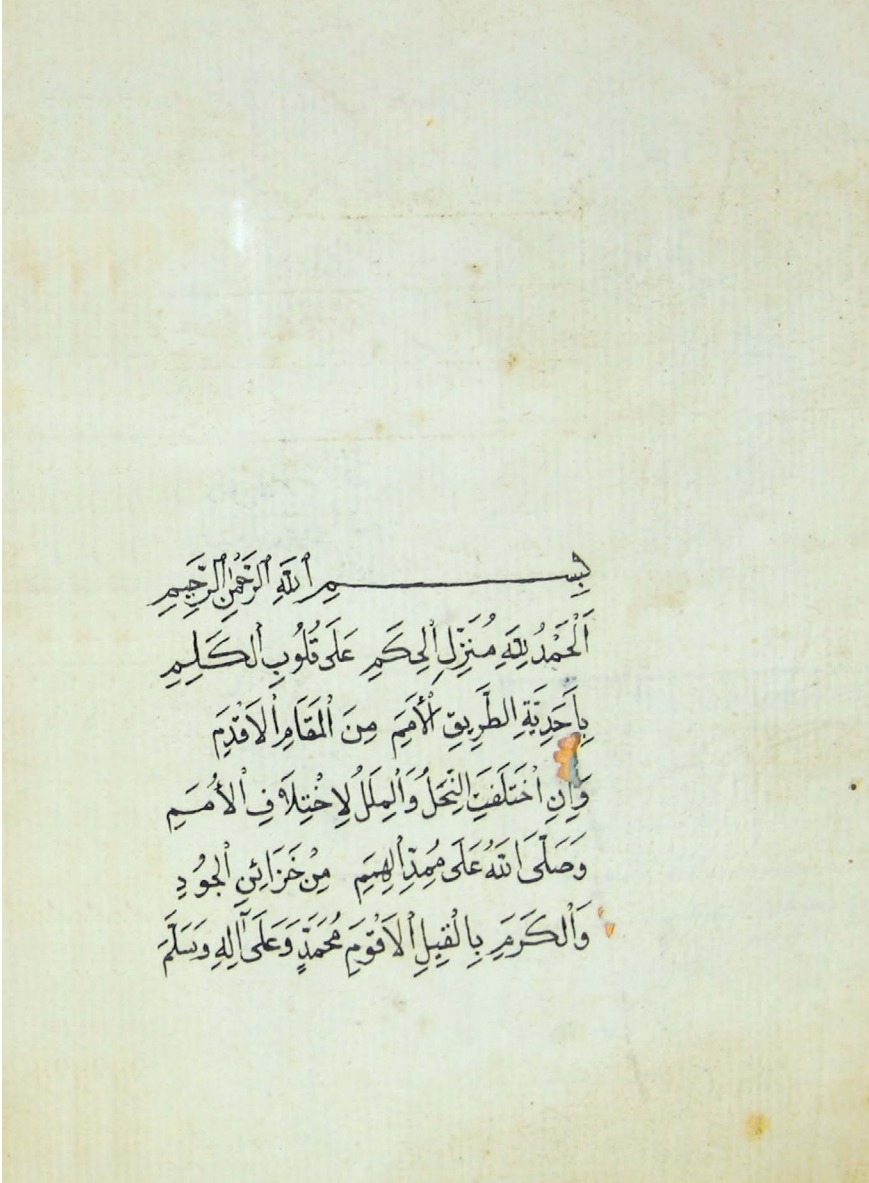 بِسْمِ ٱللَّهِ ٱلرَّحْمٰنِ ٱلرَّحِيمِ
اَلْحَمْدُ لِلَّهِ مُنَزِّلِ ٱلْحِكَمِ عَلَى قُلُوبِ ٱلْكَلِمِ
بِأَحَدِيَّةِ ٱلطَّرِيقِ ٱلْأَمَمِ مِنَ ٱلْمَقَامِ ٱلْأَقْدَمِ
وَإِنِ ٱخْتَلَفَتِ ٱلنِّحَلُ وَٱلْمِلَلُ لِاخْتِلَافِ ٱلْأُمَمِ
وَصَلَّى ٱللَّهُ عَلَى مُمِدِّ ٱلْهِمَمِ مِنْ خَزَائِنِ ٱلْجُودِ
وَٱلْكَرَمِ بِالْقِيلِ ٱلْأَقْوَمِ مُحَمَّدٍ وَعَلَى آلِهِ وَسَلَّمَ